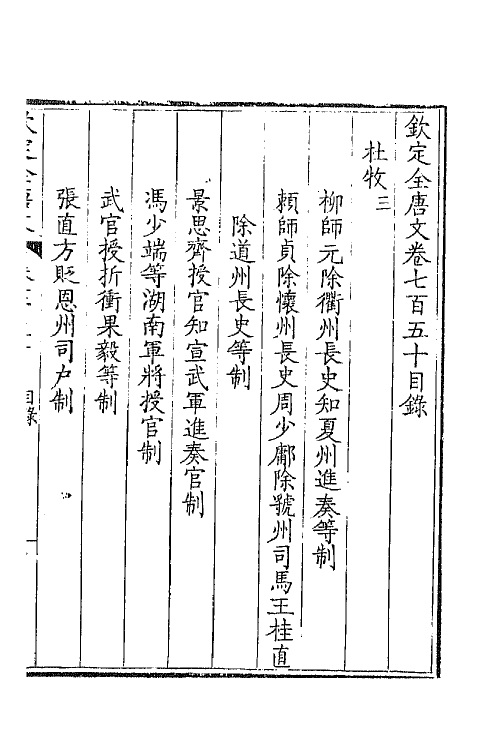 欽定全唐文卷七百五十目錄
杜牧三
柳師元除衢州長史知夏州進奏等制
賴師貞除懷州長史周少鄘除虢州司馬王桂直
除道州長史等制
景思齊授官知宣武軍進奏官制
馮少端等湖南軍將授官制
武官授折衝果毅等制
張直方貶恩州司户制
目錄